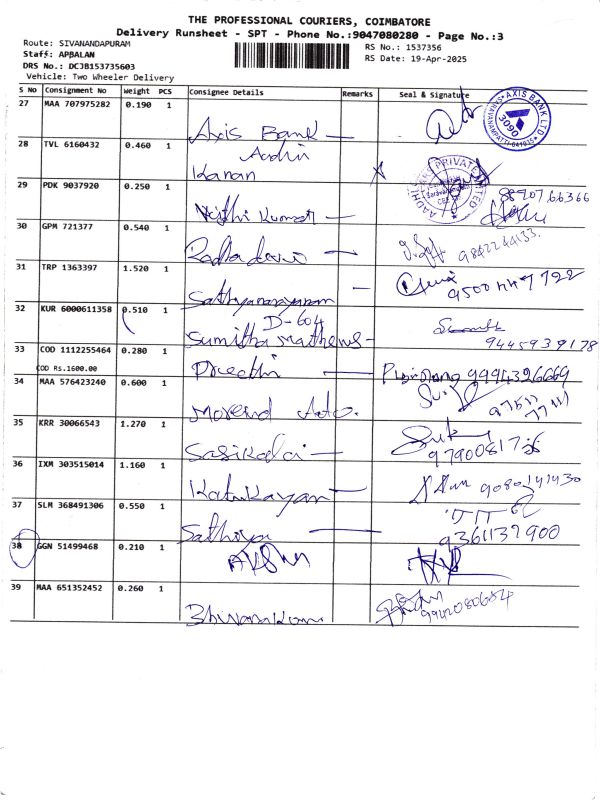 THE PROFESSIONAL COURIERS, COIMBATORE
Delivery Runsheet - SPT - Phone No.:9047080280 - Page No.:3
Route: SIVANANDAPURAM
RS No.: 1537356
Staff: APBALAN
RS Date: 19-Apr-2025
DRS No.: DCJB153735603
Vehicle: Two Wheeler Delivery
S No Consignment No Weight PCS Consignee Details Remarks Seal & Signature
27 MAA 707975282 0.190 1
Axis Bank
AXIS BANK LTD
3090
28 TVL 6160432 0.460 1
Aadhi
Kanan
PRIVATE LIMITED
29 PDK 9037920 0.250 1
Nithi Kumar
30 GPM 721377 0.540 1
Radha devi
31 TRP 1363397 1.520 1
Sathyanarayanan
9500447722
32 KUR 6000611358 0.510 1
D-604
Sumitha Mathews
9445939178
33 COD 1112255464 0.280 1
COD Rs.1600.00
Preethi
9994326669
34 MAA 576423240 0.600 1
35 KRR 30066543 1.270 1
Sasikalai
36 IXM 303515014 1.160 1
9080141430
37 SLM 368491306 0.550 1
Sathiya
9361137900
38 GGN 51499468 0.210 1
39 MAA 651352452 0.260 1
9942080684